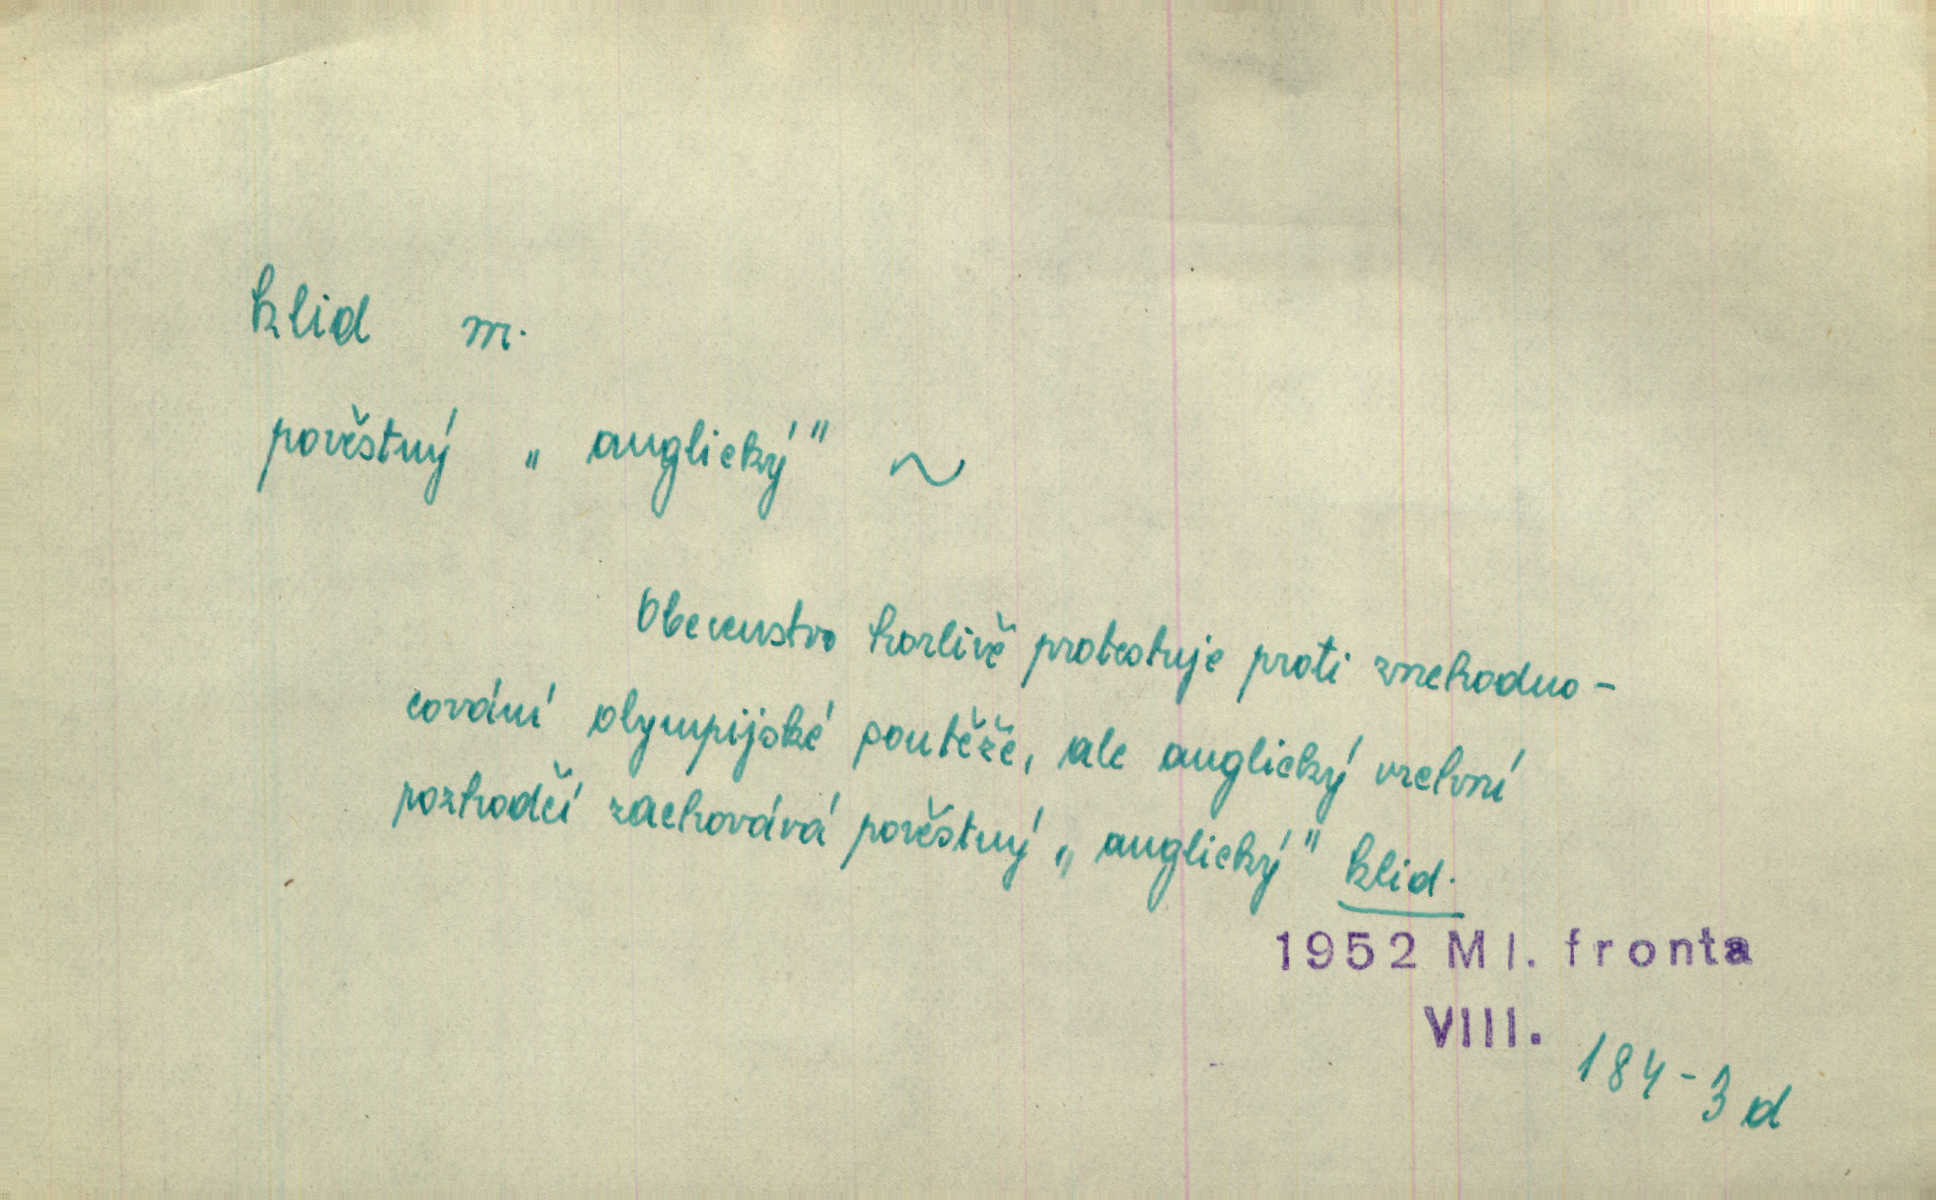 klid m.
pověstný „anglický" ~
Obecenstvo horlivě protestuje proti znehodno-
cování olympijské soutěže, ale anglický vrchní
rozhodčí zachovává pověstný „anglický" klid.
1952 Ml. fronta
VIII.
184-3d